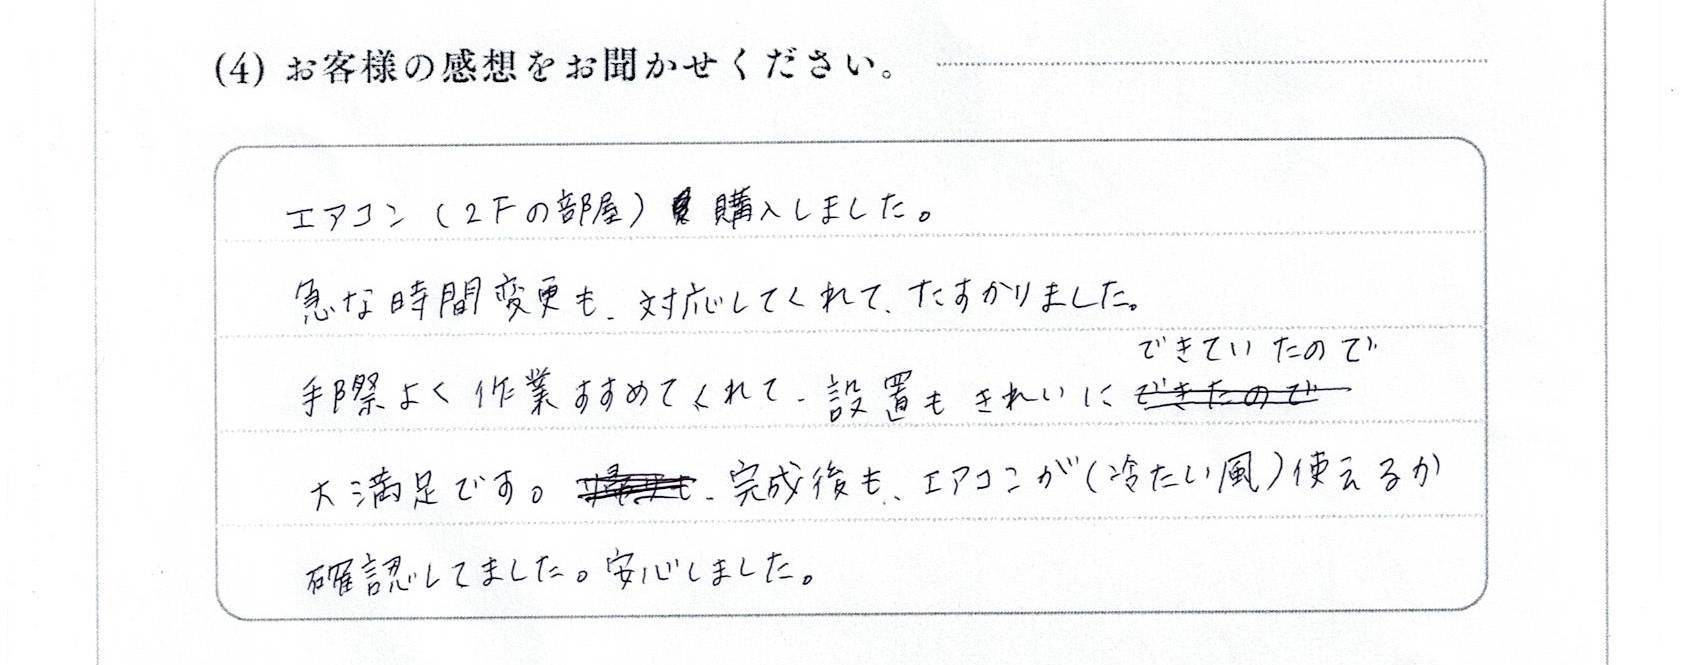 (4) お客様の感想をお聞かせください。
エアコン(2Fの部屋) 購入しました。
急な時間変更も、対応してくれて、たすかりました。
できていたので
手際よく作業すすめてくれて、設置もきれいに できたので
大満足です。 、完成後も、エアコンが(冷たい風)使えるか
確認してました。安心しました。